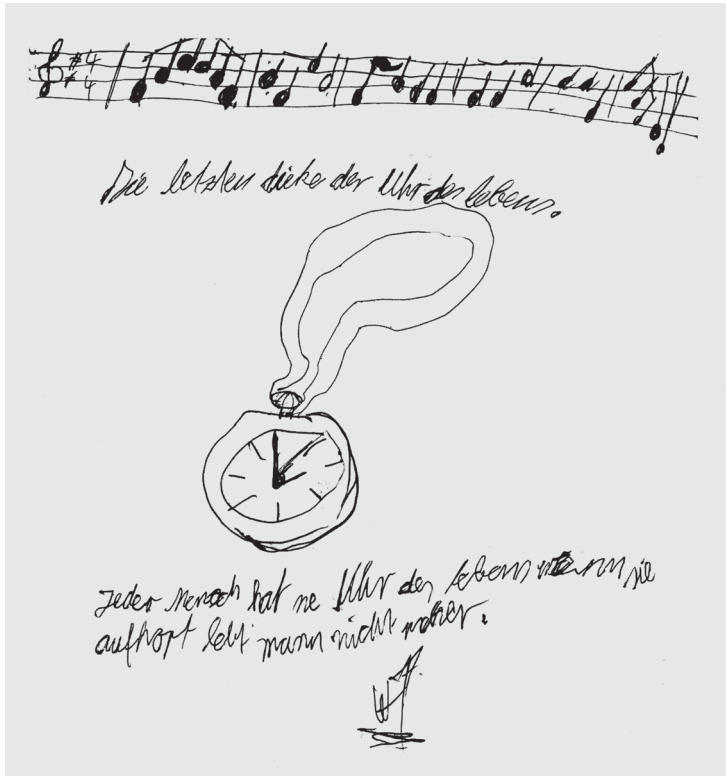 Die letzten ticke der Uhr des lebens.
Jeder Mensch hat ne Uhr des lebens wenn sie
aufhört lebt mann nicht mehr.